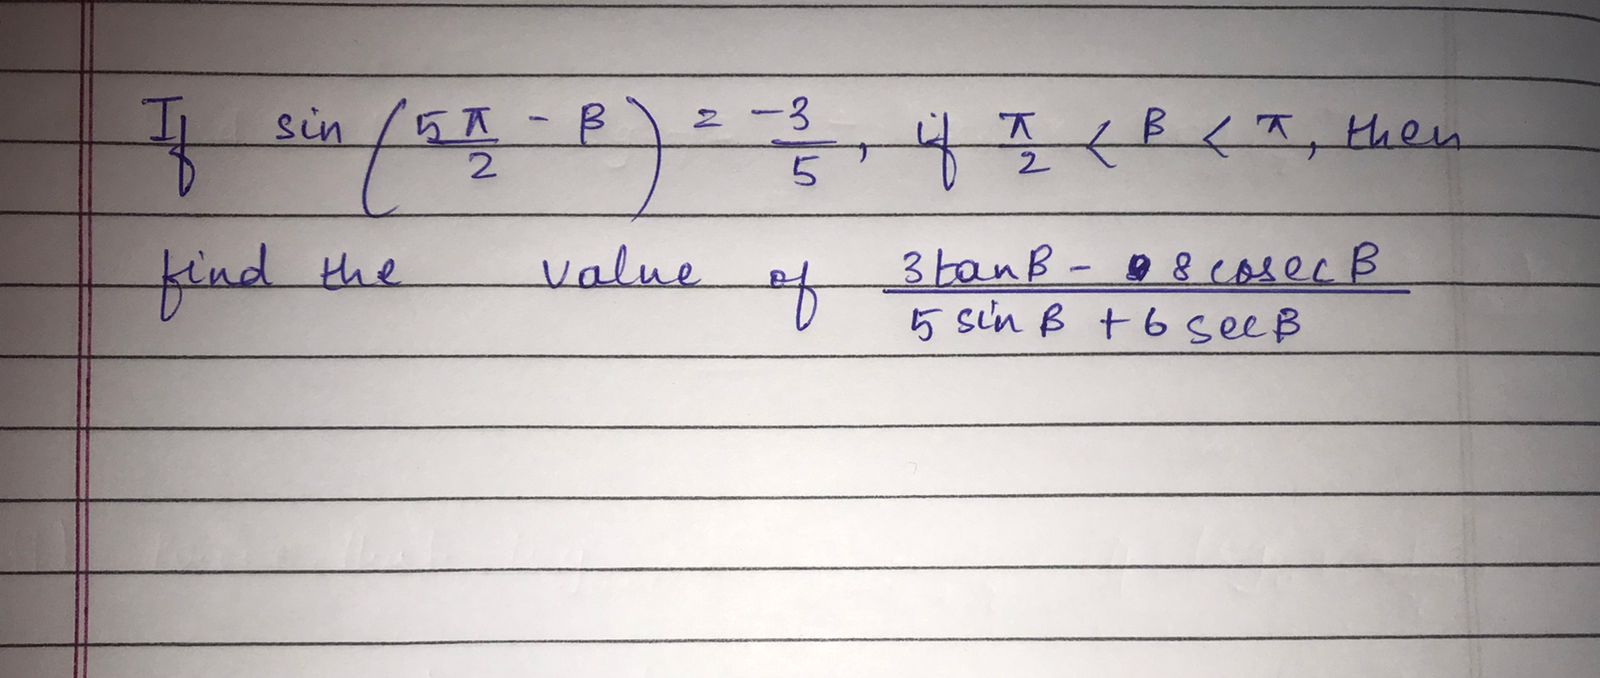 If sin(5π/2 - β) = -3/5, if π/2 < β < π, then
find the value of (3tanβ - 8cosecβ)/(5sinβ + 6secβ)